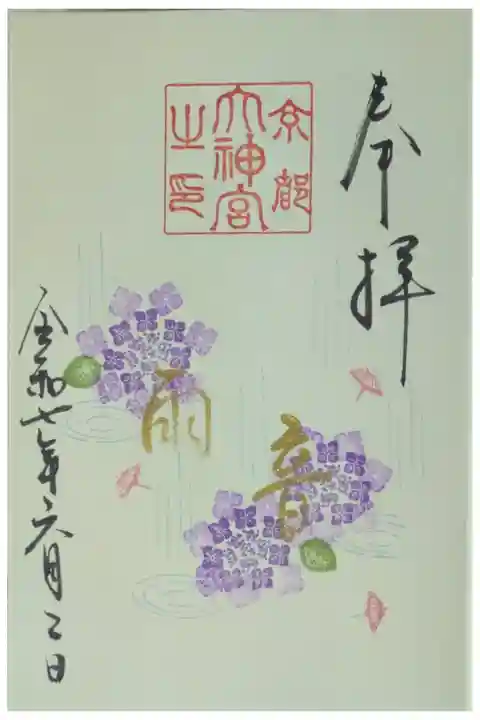 奉拝
京都
大神宮
之印
雨音
令和七年六月二日